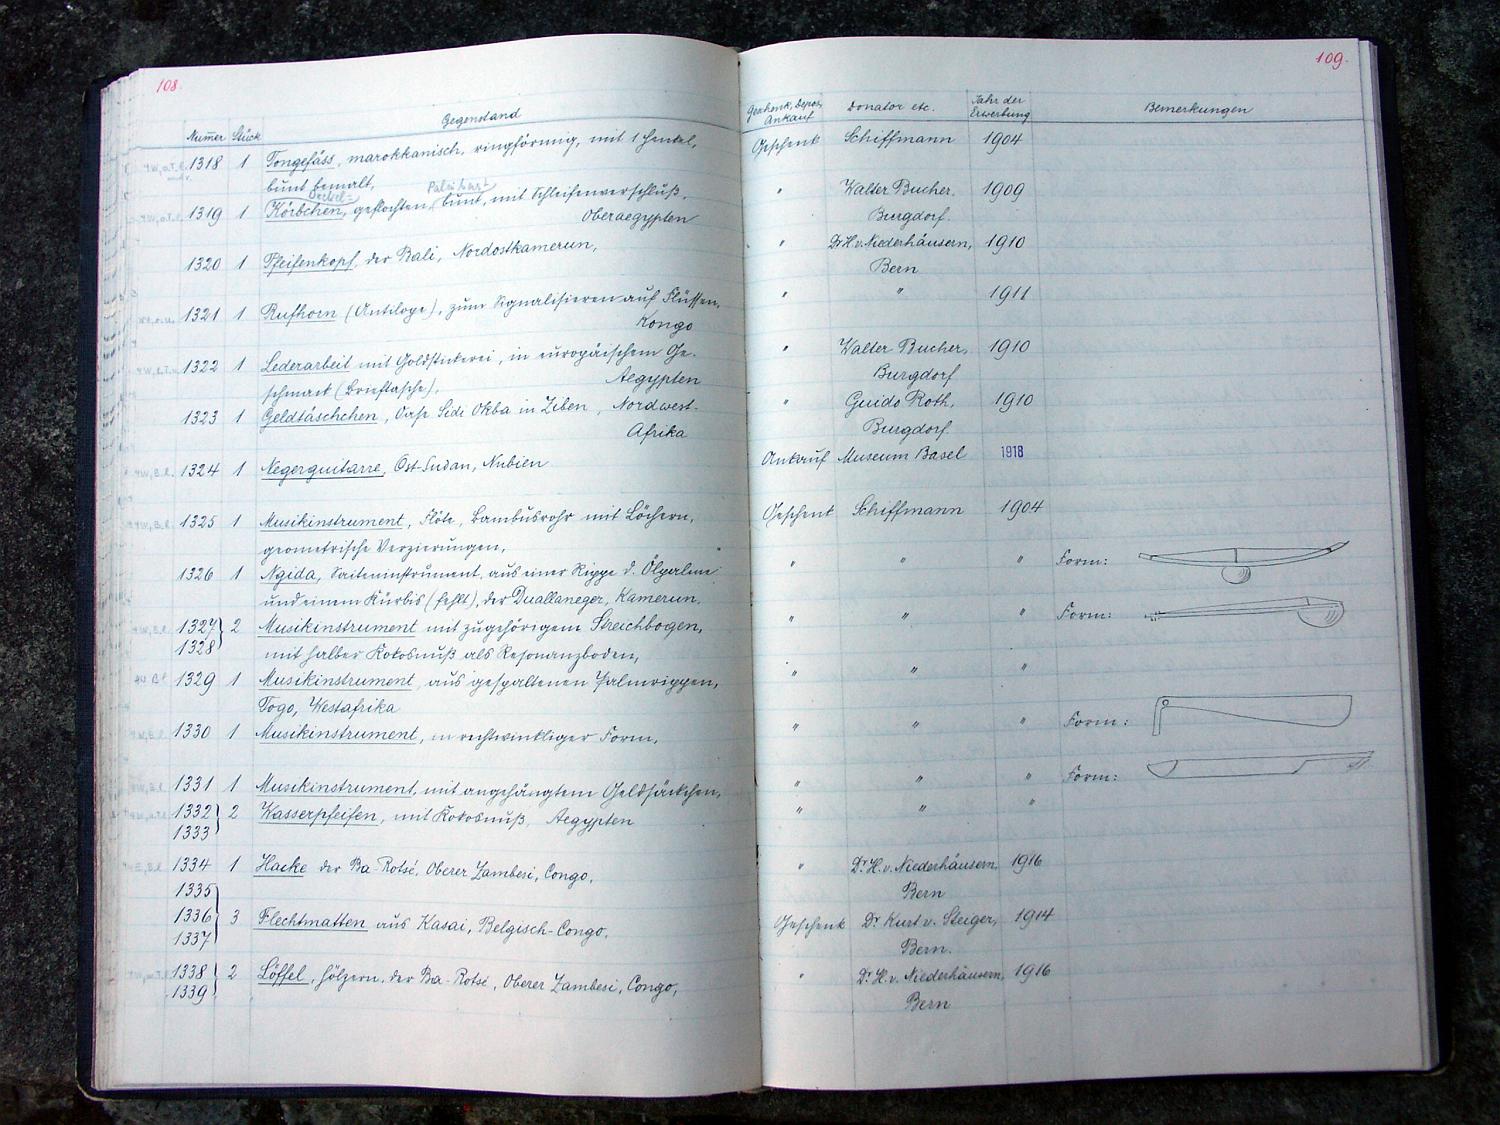 108.
Numer Stück Gegenstand
1318 1 Tongefäss, marokkanisch, ringförmig, mit 1 Henkel,
bunt bemalt,
Deckel- Palmbast
1319 1 Körbchen, geflochten, bunt, mit Schleifenverschluß,
Oberaegypten
1320 1 Pfeifenkopf, der Bali, Nordostkamerun,
1321 1 Rufhorn (Antilope), zum Signalisieren auf Flüssen,
Kongo
1322 1 Lederarbeit mit Goldstickerei, in europäischem Ge-
schmack (Brieftasche), Aegypten
1323 1 Geldtäschchen, Sidi Okba in Nordwest-
Afrika
1324 1 Negerguitarre, Ost-Sudan, Nubien
1325 1 Musikinstrument, Flöte, Bambusrohr mit Löchern,
geometrische Verzierungen,
1326 1 Ngida, Saiteninstrument, aus einer Rippe d. Ölpalme
und einem Kürbis (fehlt), der Duallaneger, Kamerun,
1327 } 2 Musikinstrument mit zugehörigem Streichbogen,
1328 mit halber Kokosnuß als Resonanzboden,
1329 1 Musikinstrument, aus gespaltenen Palmrippen,
Togo, Westafrika
1330 1 Musikinstrument, in rechtwinkliger Form,
1331 1 Musikinstrument, mit angehängtem Geldsäckchen,
1332 } 2 Wasserpfeifen, mit Kokosnuß, Aegypten
1333
1334 1 Hacke der Ba-Rotsé, Oberer Zambesi, Congo,
1335
1336 } 3 Flechtmatten aus Kasai, Belgisch-Congo,
1337
1338 } 2 Löffel, hölzern, der Ba-Rotsé, Oberer Zambesi, Congo,
1339
109.
Geschenk, Depos, Donator etc. Jahr der Bemerkungen
Ankauf Erwerbung
Geschenk Schiffmann 1904
" Walter Bucher, 1909
Burgdorf.
" Dr H. v. Niederhäusern, 1910
Bern
" " 1911
" Walter Bucher, 1910
Burgdorf
" Guido Roth, 1910
Burgdorf.
Ankauf Museum Basel 1918
Geschenk Schiffmann 1904
" " " Form:
" " " Form:
" " "
" " " Form:
" " " Form:
" " "
" Dr. H. v. Niederhäusern, 1916
Bern
Geschenk Dr Kurt v. Steiger, 1914
Bern.
" Dr. H. v. Niederhäusern, 1916
Bern